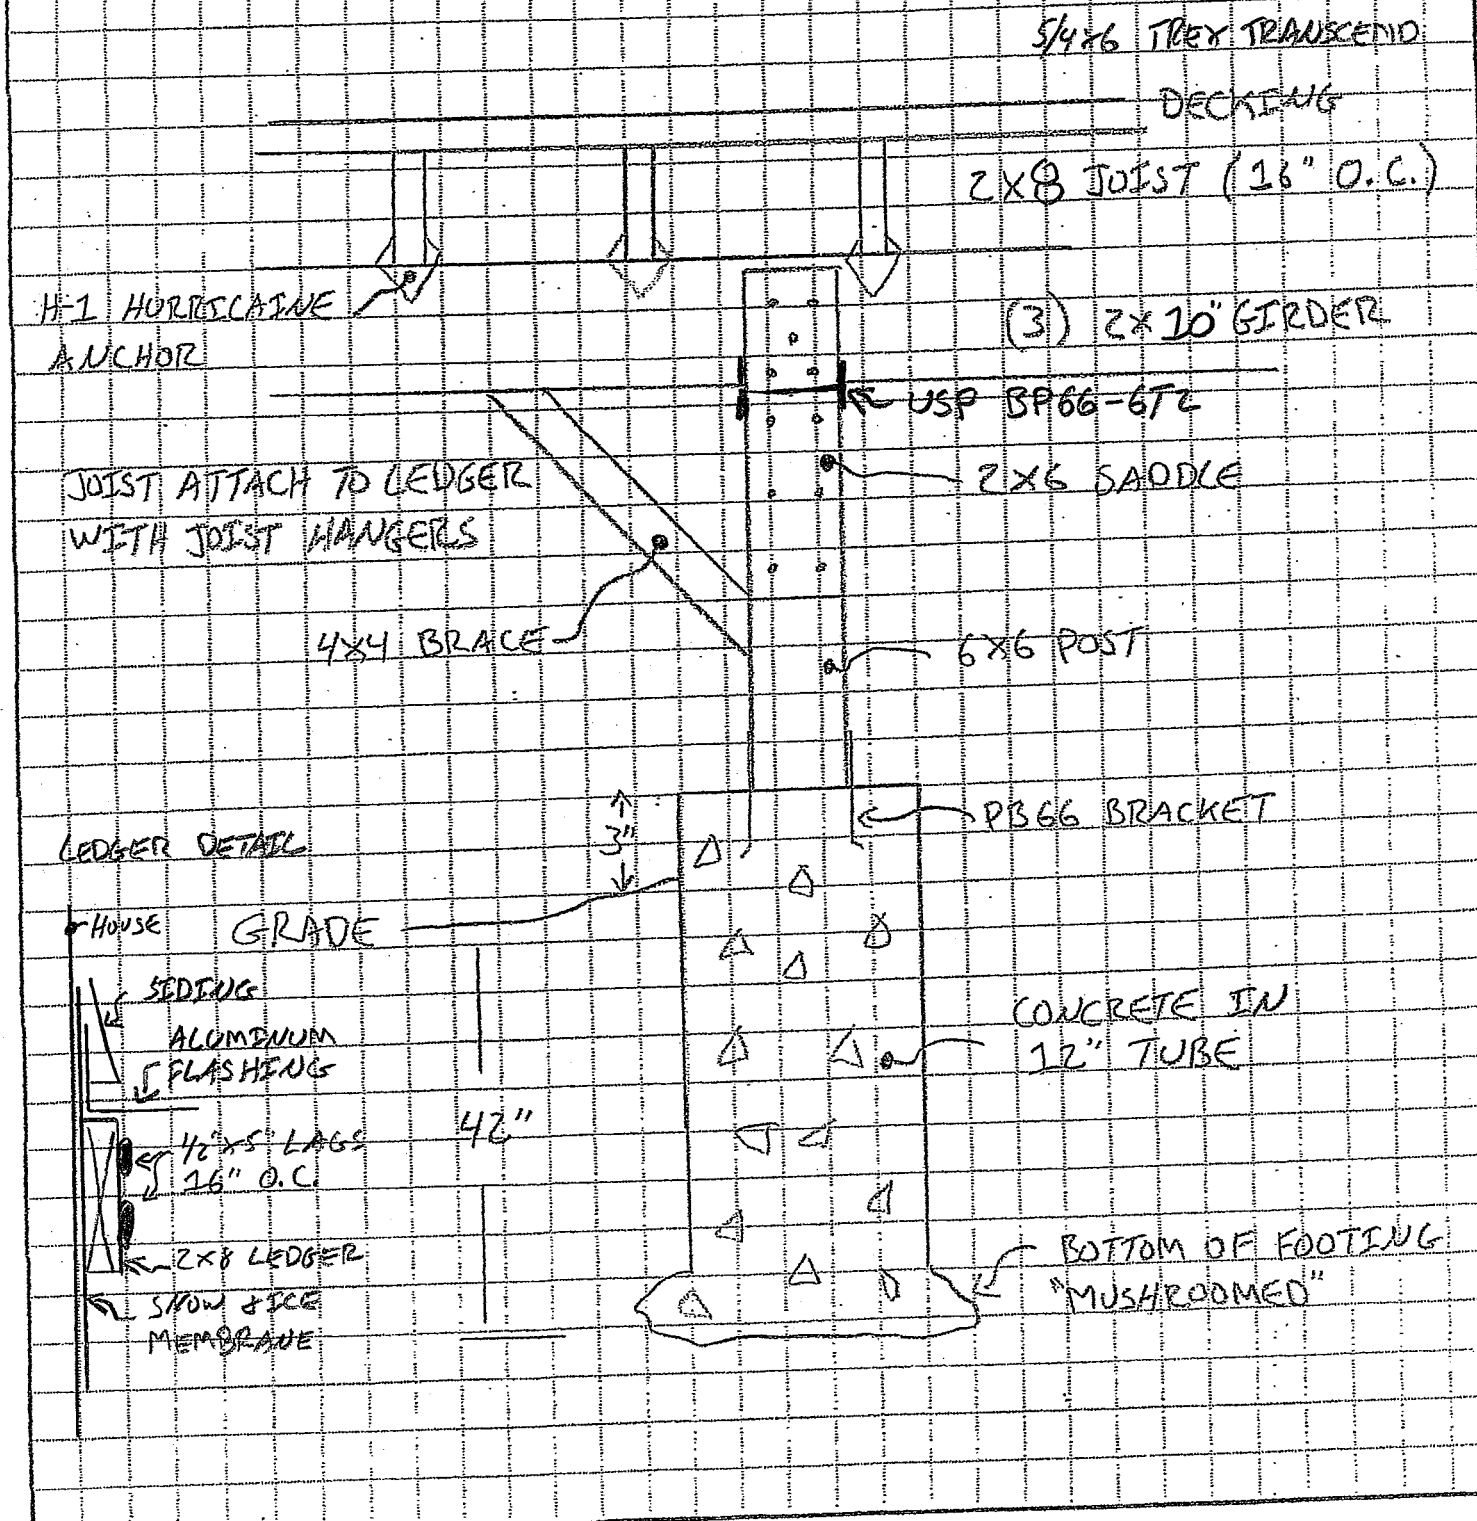 5/4x6 TREX TRANSCEND
DECKING
2x8 JOIST (16" O.C.)
H-1 HURRICAINE
ANCHOR
(3) 2x10" GIRDER
USP BP66-6TZ
2x6 SADDLE
JOIST ATTACH TO LEDGER
WITH JOIST HANGERS
4x4 BRACE
6x6 POST
3"
PB66 BRACKET
LEDGER DETAIL
HOUSE
GRADE
SIDING
ALUMINUM
FLASHING
CONCRETE IN
12" TUBE
42"
1/2"x5" LAGS
16" O.C.
2x8 LEDGER
SNOW & ICE
MEMBRANE
BOTTOM OF FOOTING
"MUSHROOMED"